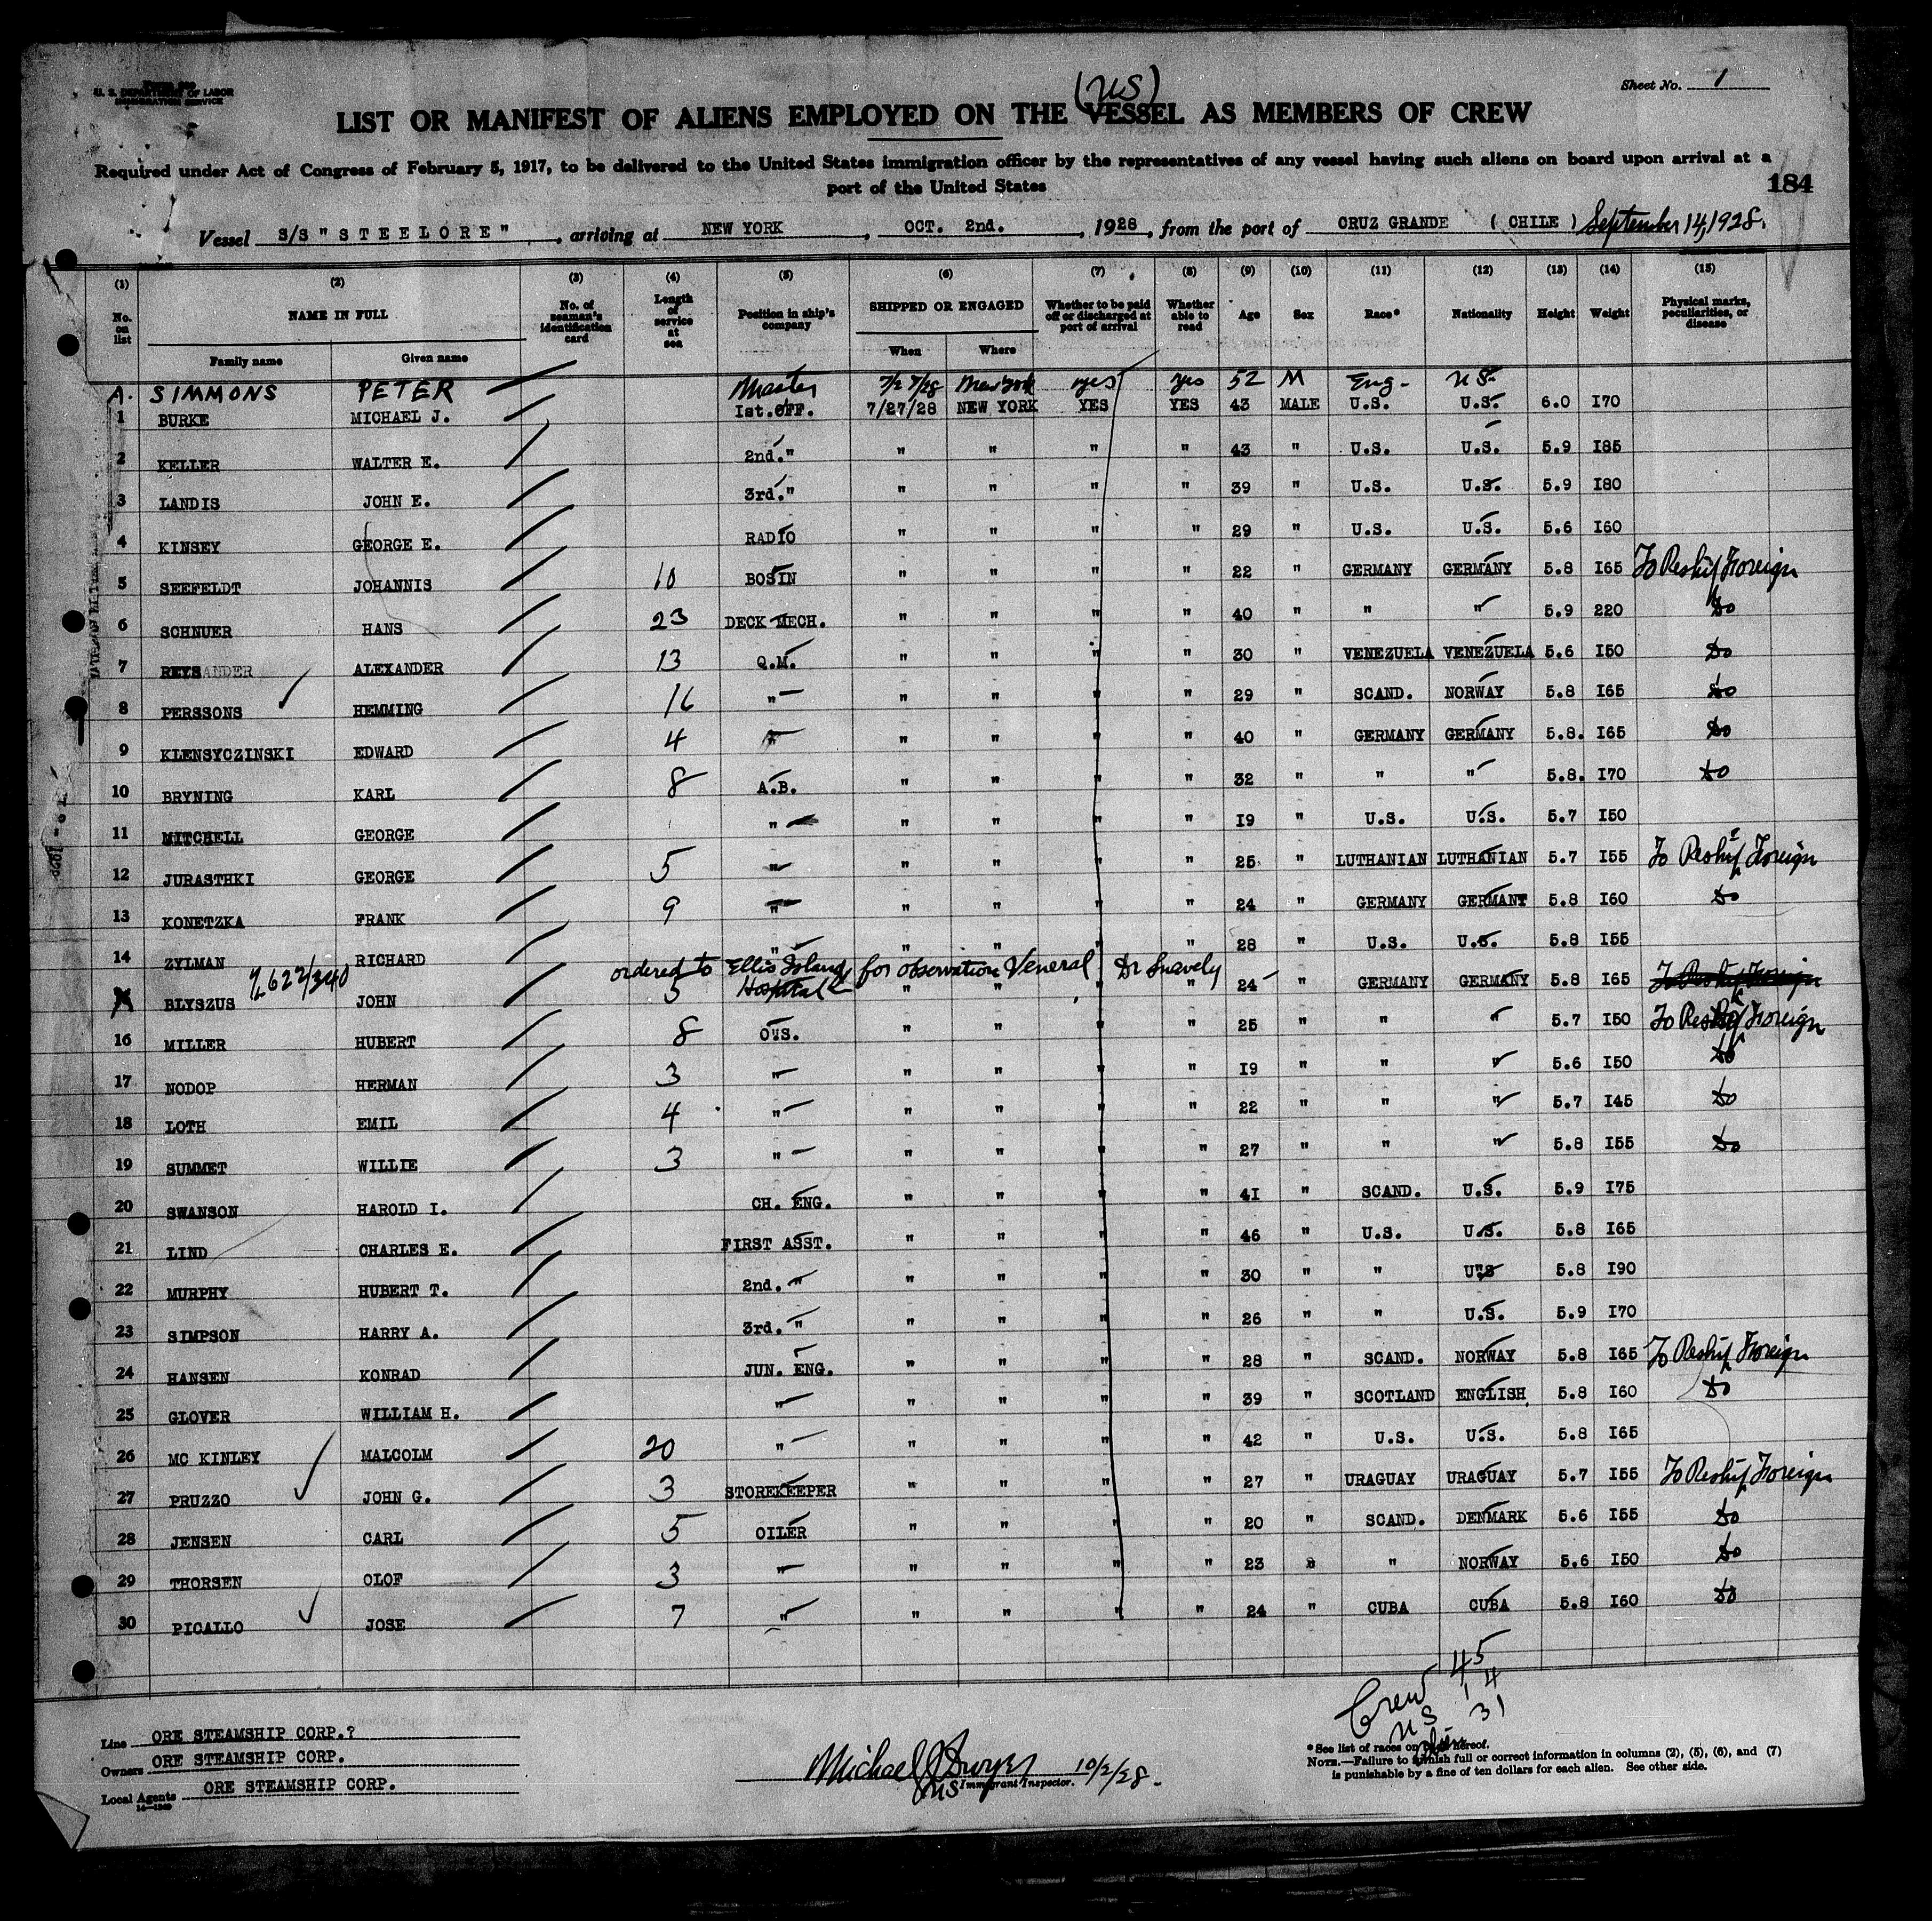 U. S. DEPARTMENT OF LABOR
IMMIGRATION SERVICE
Sheet No. 1
(US)
LIST OR MANIFEST OF ALIENS EMPLOYED ON THE VESSEL AS MEMBERS OF CREW
Required under Act of Congress of February 5, 1917, to be delivered to the United States immigration officer by the representatives of any vessel having such aliens on board upon arrival at a
port of the United States
184
Vessel S/S "STEELORE", arriving at NEW YORK, OCT. 2nd., 1928, from the port of CRUZ GRANDE (CHILE) September 14, 1928.
(1) (2) (3) (4) (5) (6) (7) (8) (9) (10) (11) (12) (13) (14) (15)
No. on list NAME IN FULL No. of seaman's identification card Length of service at sea Position in ship's company SHIPPED OR ENGAGED Whether to be paid off or discharged at port of arrival Whether able to read Age Sex Race* Nationality Height Weight Physical marks, peculiarities, or disease
Family name Given name When Where
A. SIMMONS PETER Master 7/27/28 New York yes yes 52 M Eng- US.
1 BURKE MICHAEL J. Ist.OFF. 7/27/28 NEW YORK YES YES 43 MALE U.S. U.S. 6.0 I70
2 KELLER WALTER E. 2nd." " " " " 43 " U.S. U.S. 5.9 I85
3 LANDIS JOHN E. 3rd." " " " " 39 " U.S. U.S. 5.9 I80
4 KINSEY GEORGE E. RADIO " " " " 29 " U.S. U.S. 5.6 I60
5 SEEFELDT JOHANNIS 10 BOSIN " " " " 22 " GERMANY GERMANY 5.8 I65 To Reship Foreign
6 SCHNUER HANS 23 DECK MECH. " " " " 40 " " " 5.9 220 do
7 REYS ALEXANDER 13 Q.M. " " " " 30 " VENEZUELA VENEZUELA 5.6 I50 do
8 PERSSONS HEMMING 16 " " " " " 29 " SCAND. NORWAY 5.8 I65 do
9 KLENSYCZINSKI EDWARD 4 " " " " " 40 " GERMANY GERMANY 5.8. I65 do
10 BRYNING KARL 8 A.B. " " " " 32 " " " 5.8. I70 do
11 MITCHELL GEORGE " " " " " I9 " U.S. U.S. 5.7 I50
12 JURASTHKI GEORGE 5 " " " " " 25 " LUTHANIAN LUTHANIAN 5.7 I55 To Reship Foreign
13 KONETZKA FRANK 9 " " " " " 24 " GERMANY GERMANY 5.8 I60 do
14 ZYLMAN RICHARD " " " " " 28 " U.S. U.S. 5.8 I55
ordered to Ellis Island Hospital for observation Veneral Dr Snavely
BLYSZUS JOHN 5 " " " 24 " GERMANY GERMANY 5.8 I65 To Reship Foreign
16 MILLER HUBERT 8 O.S. " " " " 25 " " " 5.7 I50 To Reship Foreign
17 NODOP HERMAN 3 " " " " " I9 " " " 5.6 I50 do
18 LOTH EMIL 4 " " " " " 22 " " " 5.7 I45 do
19 SUMMET WILLIE 3 " " " " " 27 " " " 5.8 I55 do
20 SWANSON HAROLD I. CH. ENG. " " " " 4I " SCAND. U.S. 5.9 I75
21 LIND CHARLES E. FIRST ASST. " " " " 46 " U.S. U.S. 5.8 I65
22 MURPHY HUBERT T. 2nd. " " " " " 30 " " U"S 5.8 I90
23 SIMPSON HARRY A. 3rd. " " " " " 26 " " U.S. 5.9 I70
24 HANSEN KONRAD JUN. ENG. " " " " 28 " SCAND. NORWAY 5.8 I65 To Reship Foreign
25 GLOVER WILLIAM H. " " " " " 39 " SCOTLAND ENGLISH 5.8 I60 do
26 MC KINLEY MALCOLM 20 " " " " " 42 " U.S. U.S. 5.8 I65
27 PRUZZO JOHN G. 3 STOREKEEPER " " " " 27 " URAGUAY URAGUAY 5.7 I55 To Reship Foreign
28 JENSEN CARL 5 OILER " " " " 20 " SCAND. DENMARK 5.6 I55 do
29 THORSEN OLOF 3 " " " " " 23 " " NORWAY 5.6 I50 do
30 PICALLO JOSE 7 " " " " " 24 " CUBA CUBA 5.8 I60 do
Crew 45
US 14
Alien 31
Line ORE STEAMSHIP CORP.?
Owners ORE STEAMSHIP CORP.
Local Agents ORE STEAMSHIP CORP.
14-1240
Michael J Dwyer 10/2/28.
US Immigrant Inspector.
*See list of races on back hereof.
NOTE.—Failure to furnish full or correct information in columns (2), (5), (6), and (7)
is punishable by a fine of ten dollars for each alien. See other side.